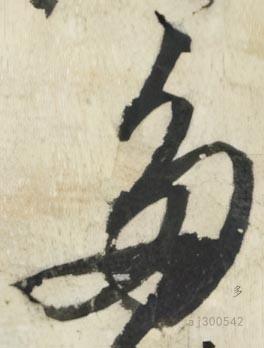 多
aj300542